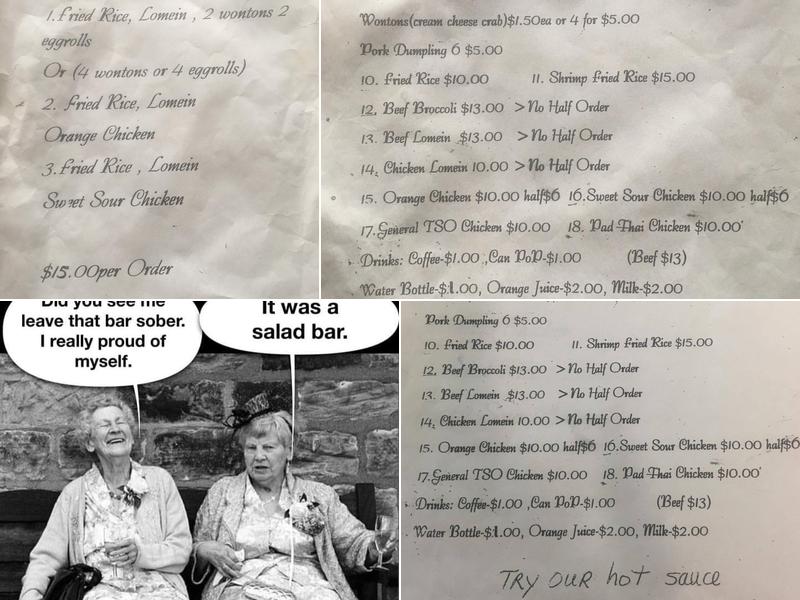 1. Fried Rice, Lomein , 2 wontons 2
eggrolls
Or (4 wontons or 4 eggrolls)
2. Fried Rice, Lomein
Orange Chicken
3. Fried Rice , Lomein
Sweet Sour Chicken
$15.00per Order
Wontons(cream cheese crab)$1.50ea or 4 for $5.00
Pork Dumpling 6 $5.00
10. Fried Rice $10.00 11. Shrimp Fried Rice $15.00
12. Beef Broccoli $13.00 >No Half Order
13. Beef Lomein $13.00 >No Half Order
14. Chicken Lomein 10.00 >No Half Order
15. Orange Chicken $10.00 half$6 16.Sweet Sour Chicken $10.00 half$6
17.General TSO Chicken $10.00 18. Pad Thai Chicken $10.00
Drinks: Coffee-$1.00 ,Can PoP-$1.00 (Beef $13)
Water Bottle-$1.00, Orange Juice-$2.00, Milk-$2.00
Did you see me
leave that bar sober.
I really proud of
myself.
It was a
salad bar.
Pork Dumpling 6 $5.00
10. Fried Rice $10.00 11. Shrimp Fried Rice $15.00
12. Beef Broccoli $13.00 >No Half Order
13. Beef Lomein $13.00 >No Half Order
14. Chicken Lomein 10.00 >No Half Order
15. Orange Chicken $10.00 half$6 16.Sweet Sour Chicken $10.00 half$6
17.General TSO Chicken $10.00 18. Pad Thai Chicken $10.00
Drinks: Coffee-$1.00 ,Can PoP-$1.00 (Beef $13)
Water Bottle-$1.00, Orange Juice-$2.00, Milk-$2.00
TRY OUR hot sauce